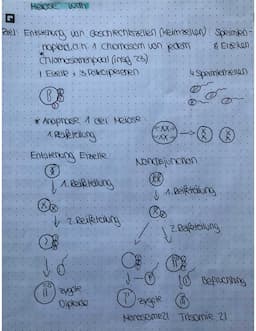 Meiose
Ziel: Entstehung von Geschlechtszellen (Keimzellen) Spermien
haploid, d.h. 1 Chromosom von jedem & Eizellen
Chromosomenpaar (insg. 23)
1 Eizelle + 3 Polkörperchen 4 Spermienzellen
* Anaphase 1 der Meiose
1. Reifeteilung
Entstehung Eizelle Nondisjunction
1. Reifeteilung 1. Reifeteilung
2. Reifeteilung 2. Reifeteilung
Befruchtung
Zygote Zygote
Diploide
Monosomie 21 Trisomie 21